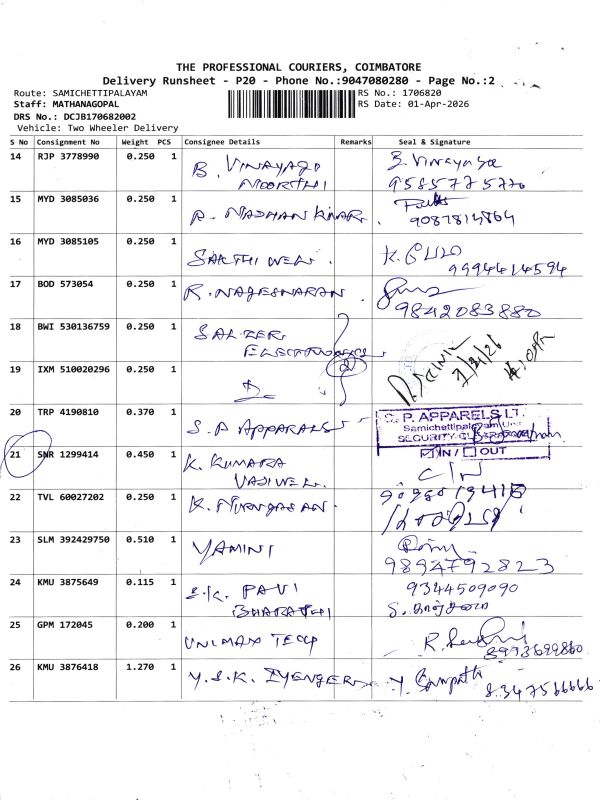 THE PROFESSIONAL COURIERS, COIMBATORE
Delivery Runsheet - P20 - Phone No.:9047080280 - Page No.:2
Route: SAMICHETTIPALAYAM
RS No.: 1706820
Staff: MATHANAGOPAL
RS Date: 01-Apr-2026
DRS No.: DCJB170682002
Vehicle: Two Wheeler Delivery
S No Consignment No Weight PCS Consignee Details Remarks Seal & Signature
14 RJP 3778990 0.250 1 B. VINAYAGO MOORTHI B. Vinayaga
9585775770
15 MYD 3085036 0.250 1 R. MADHAN KUMAR.
9087814864
16 MYD 3085105 0.250 1 SAKTHIVEL.
9994614594
17 BOD 573054 0.250 1 R. NAGESWARAN
9842083880
18 BWI 530136759 0.250 1 SALZER
ELECTRONICS
19 IXM 510020296 0.250 1 2
20 TRP 4190810 0.370 1 S.P APPARALS
S. P. APPARELS LT.
Samichettipalayam Unit
IN / OUT
21 SNR 1299414 0.450 1 K. KUMARA
VADIVEL.
22 TVL 60027202 0.250 1
23 SLM 392429750 0.510 1 YAMINI
9894792823
24 KMU 3875649 0.115 1 S.K. PAVI
BHARATHI
9344509090
25 GPM 172045 0.200 1 UNIMAX TECH
8993699860
26 KMU 3876418 1.270 1 Y.S.K. IYENGER Y. Sampath
8347566666